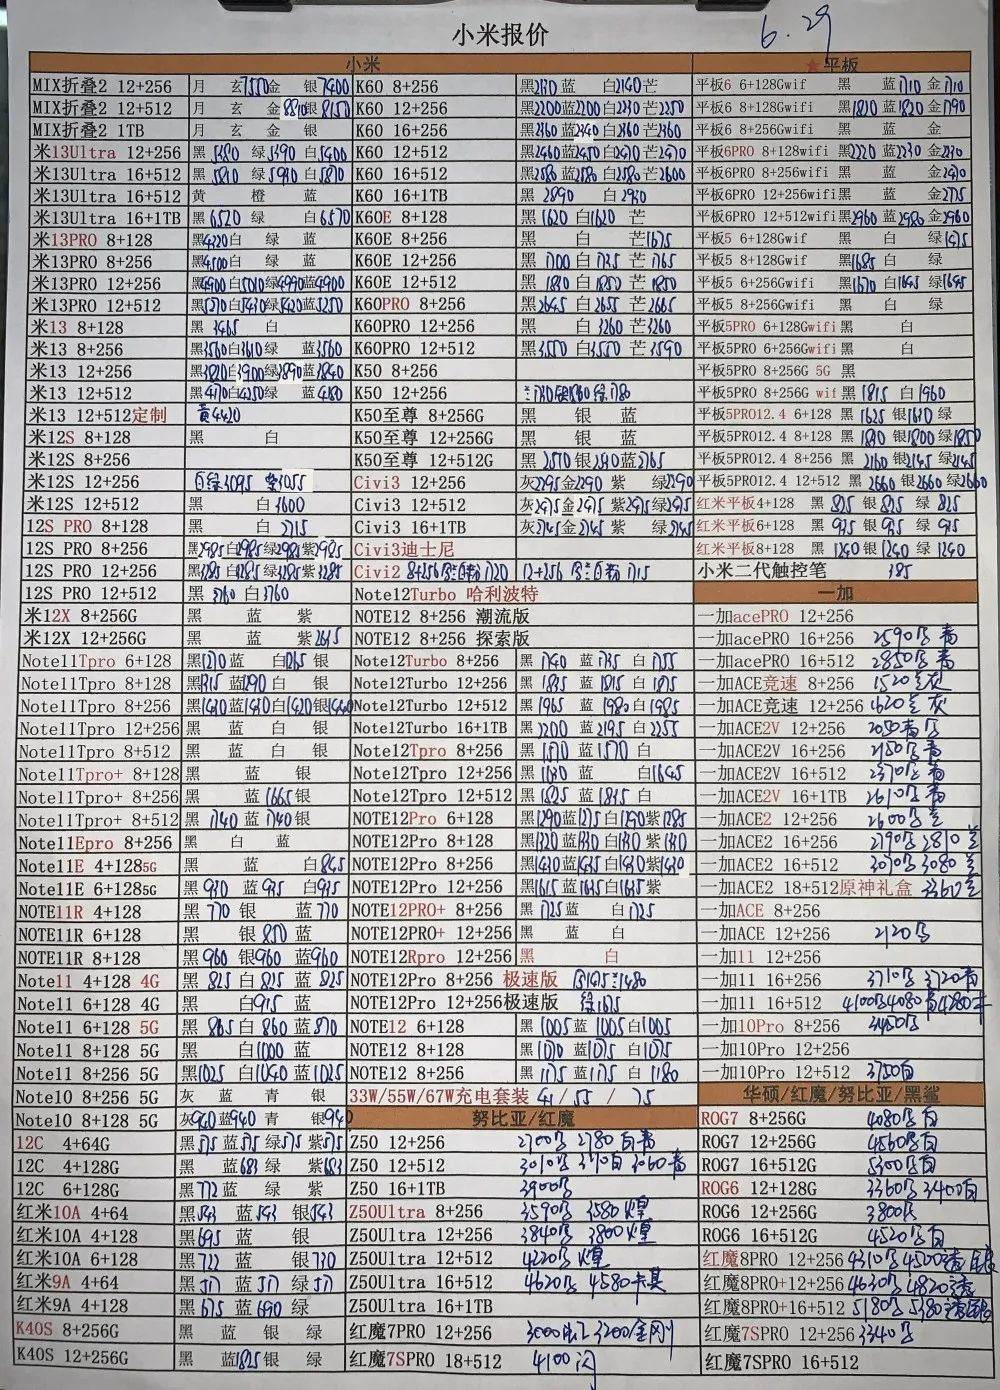 小米报价 6.29
小米 ★平板
MIX折叠2 12+256 月 玄7550金 银7400 K60 8+256 黑2130 蓝 白2140 芒 平板6 6+128Gwif 黑 蓝1710 金1710
MIX折叠2 12+512 月 玄 金8810银8150 K60 12+256 黑2200蓝2200白2230芒2250 平板6 8+128Gwif 黑1820 蓝1820 金1790
MIX折叠2 1TB 月 玄 金 银 K60 16+256 黑2360蓝2340白2360芒2360 平板6 8+256Gwifi 黑 蓝 金
米13Ultra 12+256 黑5380 绿5390 白5400 K60 12+512 黑2460蓝2450白2470芒2470 平板6PRO 8+128wifi 黑2220 蓝2230 金2230
米13Ultra 16+512 黑5810 绿5940 白5870 K60 16+512 黑2580蓝2580白2580芒2600 平板6PRO 8+256wifi 黑 蓝 金2470
米13Ultra 16+512 黄 橙 蓝 K60 16+1TB 黑2890 白2930 平板6PRO 12+256wifi 黑 蓝 金2775
米13Ultra 16+1TB 黑6520 绿 白6570 K60E 8+128 黑1620 白1620 芒 平板6PRO 12+512wifi 黑2960 蓝2980 金2960
米13PRO 8+128 黑4220白 绿 蓝 K60E 8+256 黑 白 芒1675 平板5 6+128Gwif 黑 白 绿1475
米13PRO 8+256 黑4500白 绿 蓝 K60E 12+256 黑1700 白1725 芒1765 平板5 8+128Gwif 黑1685 白 绿
米13PRO 12+256 黑4900白5010绿4990蓝4900 K60E 12+512 黑1830 白1850 芒1850 平板5 6+256Gwif 黑1670 白1645 绿1645
米13PRO 12+512 黑5270白5430绿5420蓝5250 K60PRO 8+256 黑2645 白2655 芒2665 平板5 8+256Gwifi 黑 白 绿
米13 8+128 黑3465 白 K60PRO 12+256 黑 白3260 芒3260 平板5PRO 6+128Gwifi 黑 白
米13 8+256 黑3560白3610绿 蓝3560 K60PRO 12+512 黑3550 白3550 芒3590 平板5PRO 6+256Gwifi 黑 白
米13 12+256 黑3820白3900绿3890蓝3840 K50 8+256 平板5PRO 8+256G 5G 黑
米13 12+512 黑4170白4250绿 蓝4180 K50 12+256 平板5PRO 8+256G wif 黑1815 白1960
米13 12+512定制 黄4420 K50至尊 8+256G 黑 银 蓝 平板5PRO12.4 6+128 黑1625 银1630 绿
米12S 8+128 黑 白 K50至尊 12+256G 黑 银 蓝 平板5PRO12.4 8+128 黑1830 银1800 绿1850
米12S 8+256 K50至尊 12+512G 黑2570 银2830 蓝2765 平板5PRO12.4 8+256 黑2160 银2145 绿2145
米12S 12+256 白绿3095 紫3055 Civi3 12+256 灰2295金2290 紫 绿2290 平板5PRO12.4 12+512 黑2660 银2660 绿2660
米12S 12+512 黑 白3600 Civi3 12+512 灰2475金2475 紫2475绿2475 红米平板4+128 黑825 银825 绿825
12S PRO 8+128 黑 白2715 Civi3 16+1TB 灰2745金2745 紫 绿2745 红米平板6+128 黑935 银935 绿915
12S PRO 8+256 黑2985白2985绿2985紫2985 Civi3迪士尼 红米平板8+128 黑1240 银1240 绿1240
12S PRO 12+256 黑3285 白3285绿3285紫3285 Civi2 8+256 1720 12+256 1715 小米二代触控笔 385
12S PRO 12+512 黑3760 白3760 Note12Turbo 哈利波特 一加
米12X 8+256G 黑 蓝 紫 NOTE12 8+256 潮流版 一加acePRO 12+256
米12X 12+256G 黑 蓝 紫2615 NOTE12 8+256 探索版 一加acePRO 16+256 2590 青
Note11Tpro 6+128 黑1270蓝 白1265 银 Note12Turbo 8+256 黑1740 蓝1735 白1755 一加acePRO 16+512 2850 青
Note11Tpro 8+128 黑1315 蓝1290白 银 Note12Turbo 12+256 黑1895 蓝1815 白1875 一加ACE竞速 8+256 1520 灰
Note11Tpro 8+256 黑1430蓝1430白1420银1440 Note12Turbo 12+512 黑1965 蓝1980白1985 一加ACE竞速 12+256 1620 灰
Note11Tpro 12+256 黑 蓝 白 银 Note12Turbo 16+1TB 黑2200 蓝2195 白2255 一加ACE2V 12+256 2050
Note11Tpro 8+512 黑 蓝 白 银 Note12Tpro 8+256 黑1570 蓝1570 白 一加ACE2V 16+256 2150 青
Note11Tpro+ 8+128 黑 蓝 银 Note12Tpro 12+256 黑1630 蓝 白1645 一加ACE2V 16+512 2370 青
Note11Tpro+ 8+256 黑 蓝1665银 Note12Tpro 12+512 黑1825 蓝1845 白 一加ACE2V 16+1TB 2610 青
Note11Tpro+ 8+512 黑1740 蓝1740银 NOTE12Pro 6+128 黑1290蓝1275白1250紫1285 一加ACE2 12+256 2600
Note11Epro 8+256 黑 白 蓝 NOTE12Pro 8+256 黑1320 蓝1330 白1330 紫1330 一加ACE2 16+256 2790 2810
Note11E 4+1285G 黑 蓝 白845 NOTE12Pro 8+256 黑1430蓝1435白1430紫1430 一加ACE2 16+512 3070 3080
Note11E 6+1285G 黑930 蓝935 白935 NOTE12Pro 12+256 黑1615 蓝1635白1635紫 一加ACE2 18+512原神礼盒 3360
NOTE11R 4+128 黑770 银 蓝770 NOTE12PRO+ 8+256 黑1725蓝 白1725 一加ACE 8+256
NOTE11R 6+128 黑 银850 蓝 NOTE12PRO+ 12+256 黑 蓝 白 一加ACE 12+256 2120
NOTE11R 8+128 黑960 银960 蓝960 NOTE12Rpro 12+256 黑 白 一加11 12+256
Note11 4+128 4G 黑825 白825 蓝825 NOTE12Pro 8+256 极速版 1480 一加11 16+256 3710 3720
Note11 6+128 4G 黑 白915 蓝 NOTE12Pro 12+256极速版 1625 一加11 16+512 4100 4080 4280
Note11 6+128 5G 黑865白860蓝870 NOTE12 6+128 黑1005 蓝1005白1005 一加10Pro 8+256 3450
Note11 8+128 5G 黑 白1000 蓝 NOTE12 8+128 黑1070 蓝1075 白1075 一加10Pro 12+256
Note11 8+256 5G 黑1025 白1040 蓝1025 NOTE12 8+256 黑1175 蓝1175 白1180 一加10Pro 12+512 3750白
Note10 8+256 5G 灰 蓝 青 银 33W/55W/67W充电套装 41 / 55 / 75 华硕/红魔/努比亚/黑鲨
Note10 8+128 5G 灰940 蓝940 青 银940 努比亚/红魔 ROG7 8+256G 4080 白
12C 4+64G 黑575 蓝575 绿575 紫575 Z50 12+256 2700 2780 白青 ROG7 12+256G 4560白
12C 4+128G 黑 蓝683 绿 紫683 Z50 12+512 3010 3060青 ROG7 16+512G 5300白
12C 6+128G 黑772 蓝 绿 紫 Z50 16+1TB 3900 ROG6 12+128G 3360 3400白
红米10A 4+64 黑543 蓝543 银543 Z50Ultra 8+256 3590 3580煌 ROG6 12+256G 3800
红米10A 4+128 黑695 蓝 银 Z50Ultra 12+256 3840 3800煌 ROG6 16+512G 4520白
红米10A 6+128 黑722 蓝 银730 Z50Ultra 12+512 4220 煌 红魔8PRO 12+256 4310 4500
红米9A 4+64 黑571 蓝571 绿571 Z50Ultra 16+512 4620 4580卡其 红魔8PRO+12+256 4630 4820透
红米9A 4+128 黑675 蓝690 绿 Z50Ultra 16+1TB 红魔8PRO+16+512 5180 5380
K40S 8+256G 黑 蓝 银 绿 红魔7PRO 12+256 3000 3200/金刚 红魔7SPRO 12+256 3340
K40S 12+256G 黑 蓝1825银 绿 红魔7SPRO 18+512 4100闪 红魔7SPRO 16+512